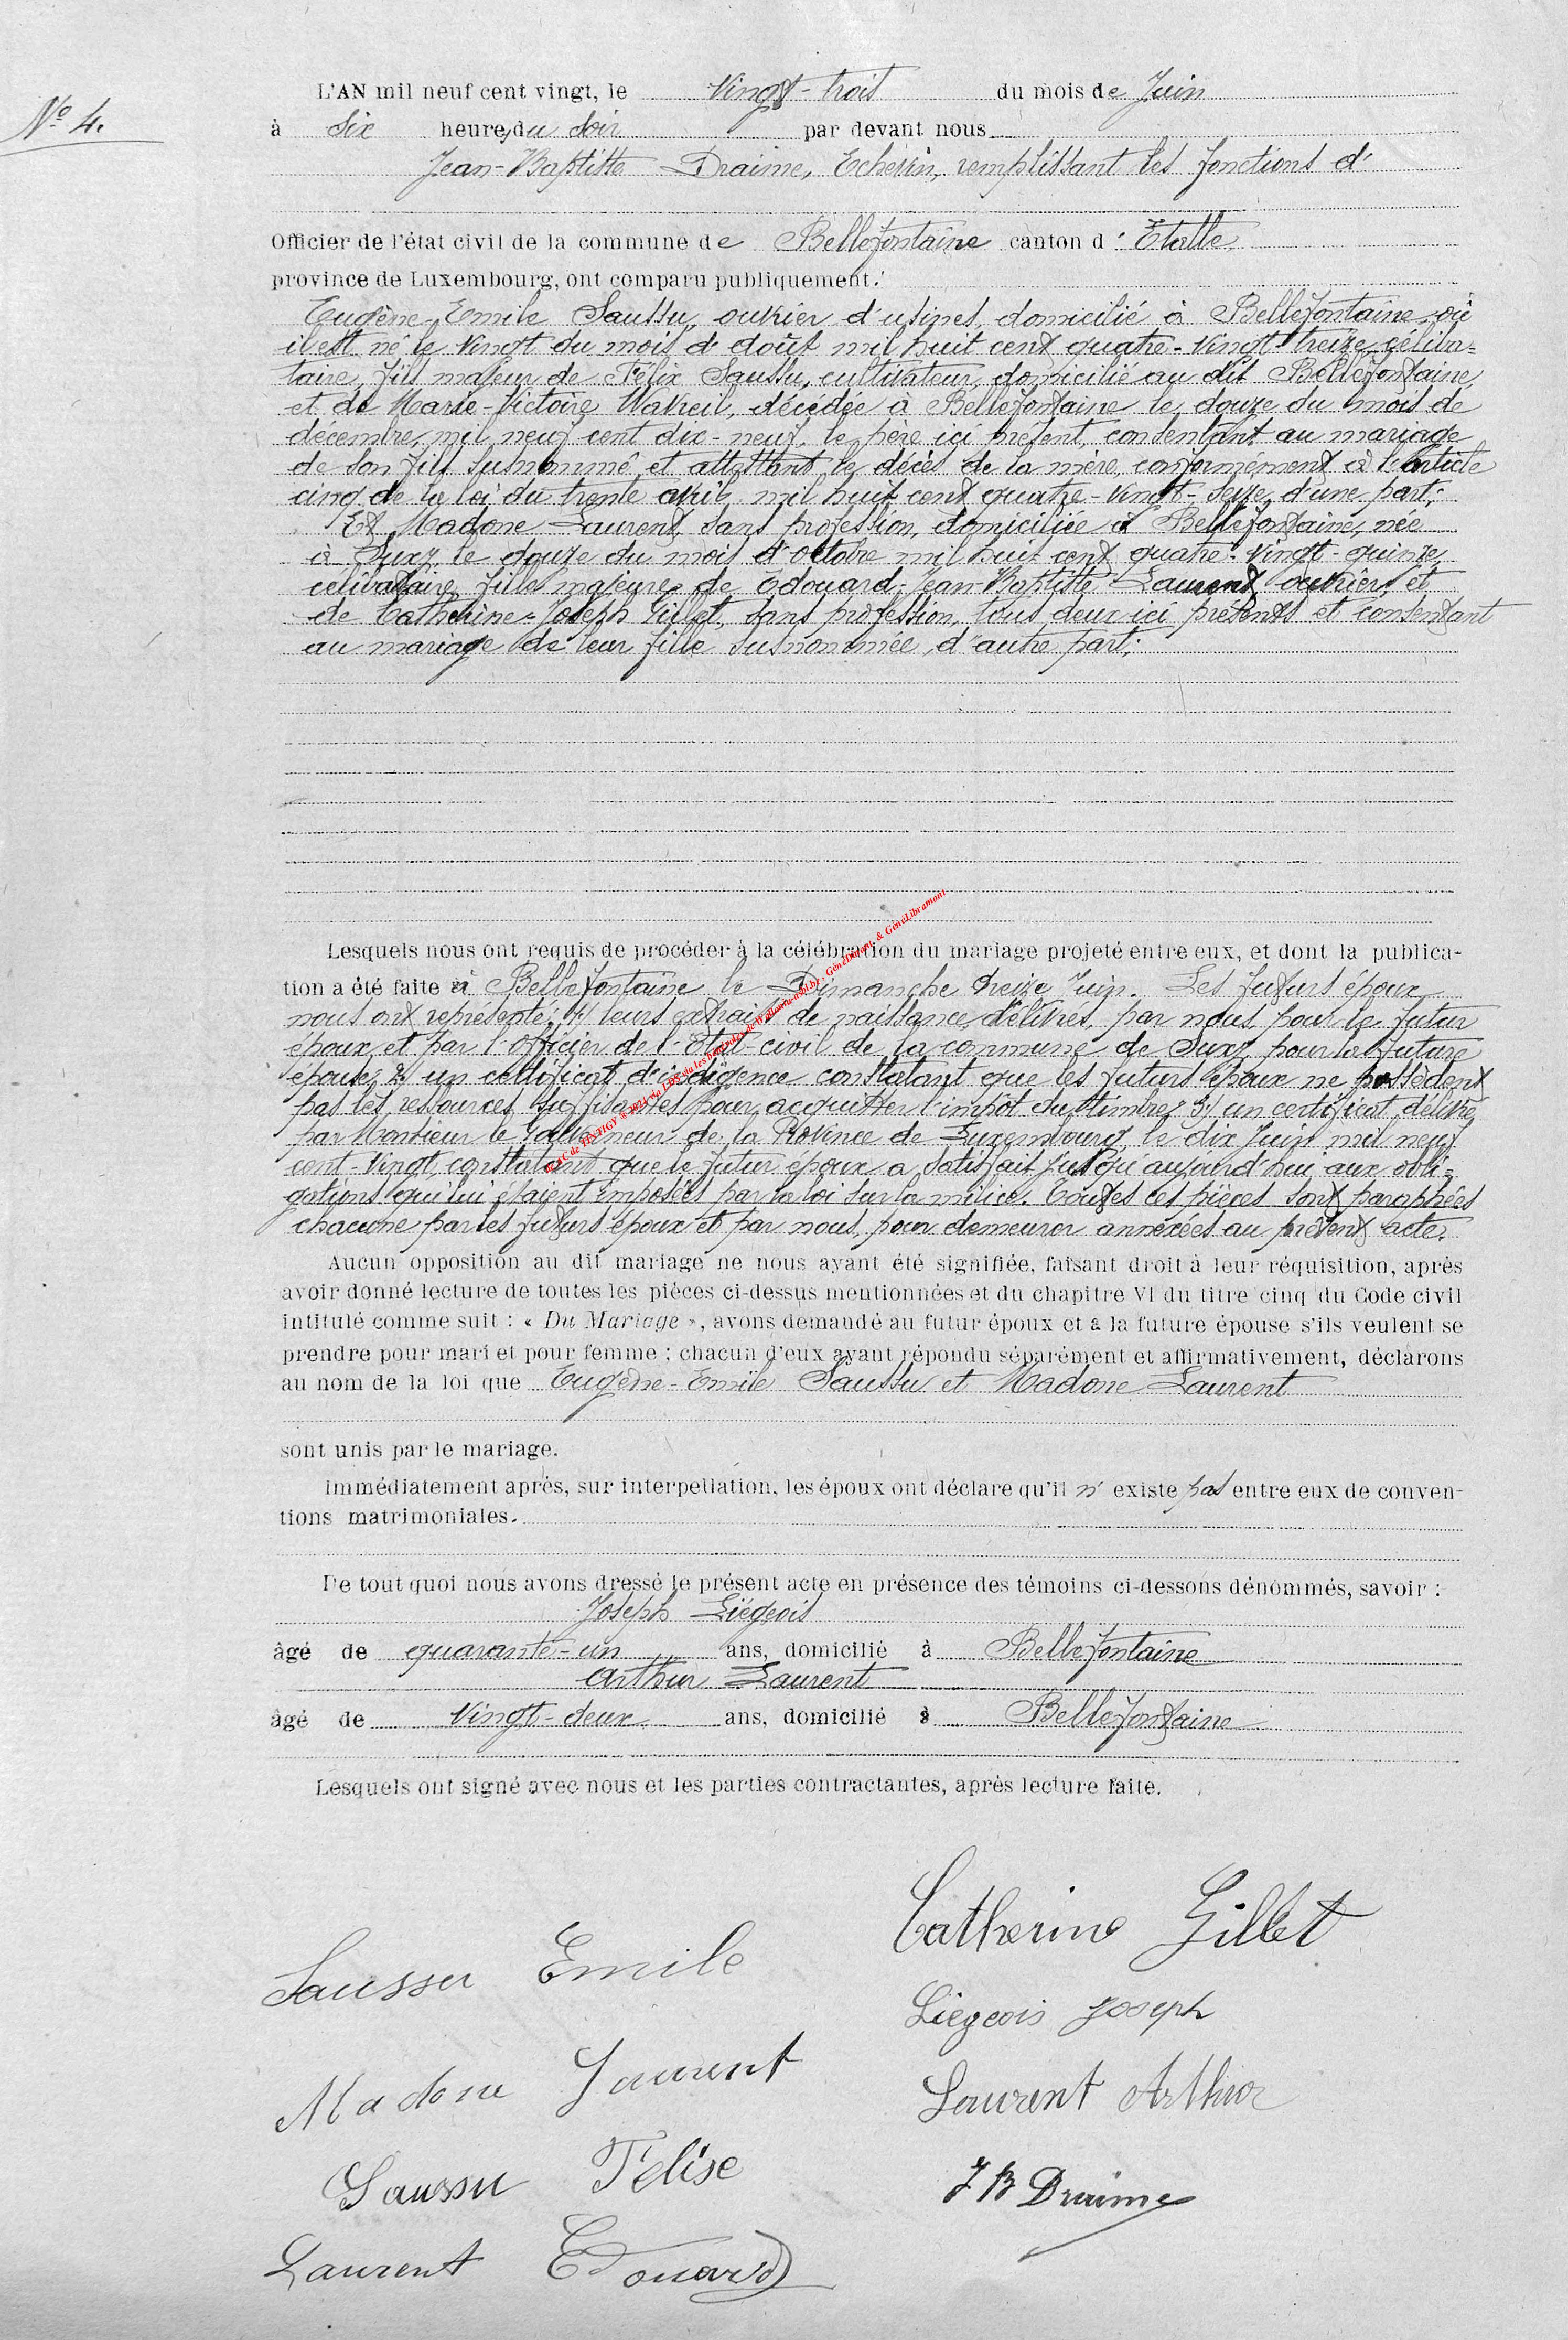 N° 4.
L'AN mil neuf cent vingt, le vingt-trois du mois de Juin
à six heures du soir par devant nous
Jean-Baptiste Draime, Echevin, remplissant les fonctions d'
Officier de l'état civil de la commune de Bellefontaine canton d' Etalle
province de Luxembourg, ont comparu publiquement :
Eugène-Emile Saussu, ouvrier d'usines, domicilié à Bellefontaine où
il est né le vingt du mois d'août mil huit cent quatre-vingt-treize, céliba-
taire, fils majeur de Félix Saussu, cultivateur, domicilié au dit Bellefontaine,
et de Marie-Victoire Watreil, décédée à Bellefontaine le douze du mois de
décembre mil neuf cent dix-neuf, le père ici présent, consentant au mariage
de son fils susnommé et attestant le décès de la mère conformément à l'article
cinq de la loi du trente avril mil huit cent quatre-vingt-seize, d'une part;
Et Madone Laurent, sans profession, domiciliée à Bellefontaine, née
à Suxy le douze du mois d'octobre mil huit cent quatre-vingt-quinze,
célibataire, fille majeure de Edouard-Jean-Baptiste Laurent, ouvrier, et
de Catherine-Joseph Gillet, sans profession, tous deux ici présents et consentant
au mariage de leur fille susnommée, d'autre part;
Lesquels nous ont requis de procéder à la célébration du mariage projeté entre eux, et dont la publica-
tion a été faite à Bellefontaine le Dimanche treize Juin. Les futurs époux
nous ont représenté: 1) leurs extraits de naissance, délivrés, par nous pour le futur
époux et par l'officier de l'état-civil de la commune de Suxy pour la future
épouse; 2) un certificat d'indigence constatant que les futurs époux ne possèdent
pas les ressources suffisantes pour acquitter l'impôt du timbre; 3) un certificat délivré
par Monsieur le Gouverneur de la Province de Luxembourg, le dix Juin mil neuf
cent-vingt, constatant que le futur époux a satisfait jusqu'aujourd'hui aux obli-
gations qui lui étaient imposées par la loi sur la milice. Toutes ces pièces sont paraphées
chacune par les futurs époux et par nous, pour demeurer annexées au présent acte.
Aucun opposition au dit mariage ne nous ayant été signifiée, faisant droit à leur réquisition, après
avoir donné lecture de toutes les pièces ci-dessus mentionnées et du chapitre VI du titre cinq du Code civil
intitulé comme suit : « Du Mariage », avons demandé au futur époux et à la future épouse s'ils veulent se
prendre pour mari et pour femme ; chacun d'eux ayant répondu séparément et affirmativement, déclarons
au nom de la loi que Eugène-Emile Saussu et Madone Laurent
sont unis par le mariage.
Immédiatement après, sur interpellation, les époux ont déclaré qu'il n'existe pas entre eux de conven-
tions matrimoniales.
De tout quoi nous avons dressé le présent acte en présence des témoins ci-dessous dénommés, savoir :
Joseph Liégeois
âgé de quarante-un ans, domicilié à Bellefontaine
Arthur Laurent
âgé de vingt-deux ans, domicilié à Bellefontaine
Lesquels ont signé avec nous et les parties contractantes, après lecture faite.
Saussu Emile
Catherine Gillet
Liégeois Joseph
Madone Laurent
Laurent Arthur
Saussu Félise
JB Draime
Laurent Edouard